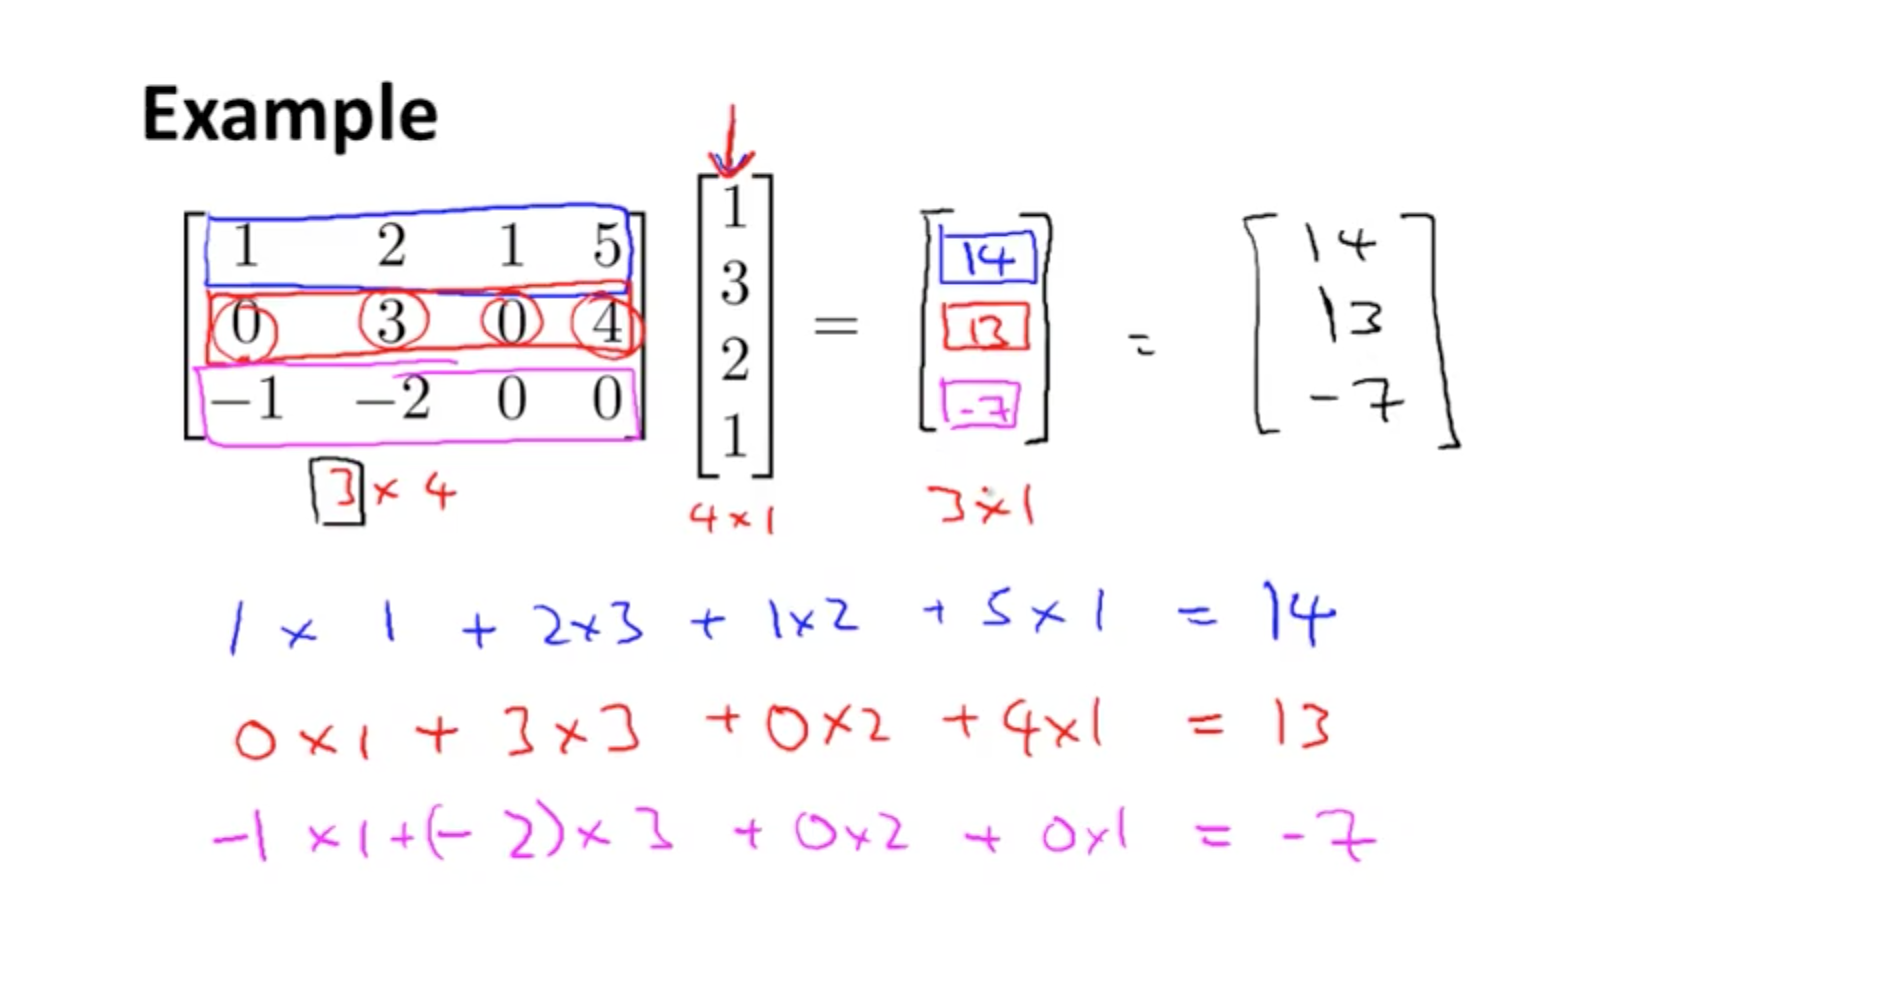 Example
1 2 1 5
0 3 0 4
−1 −2 0 0
1
3
2
1
=
14
13
-7
=
14
13
-7
3 × 4
4 × 1
3 × 1
1 × 1 + 2×3 + 1×2 + 5 × 1 = 14
0 × 1 + 3 × 3 + 0×2 + 4×1 = 13
-1 ×1 + (- 2) × 3 + 0×2 + 0×1 = -7